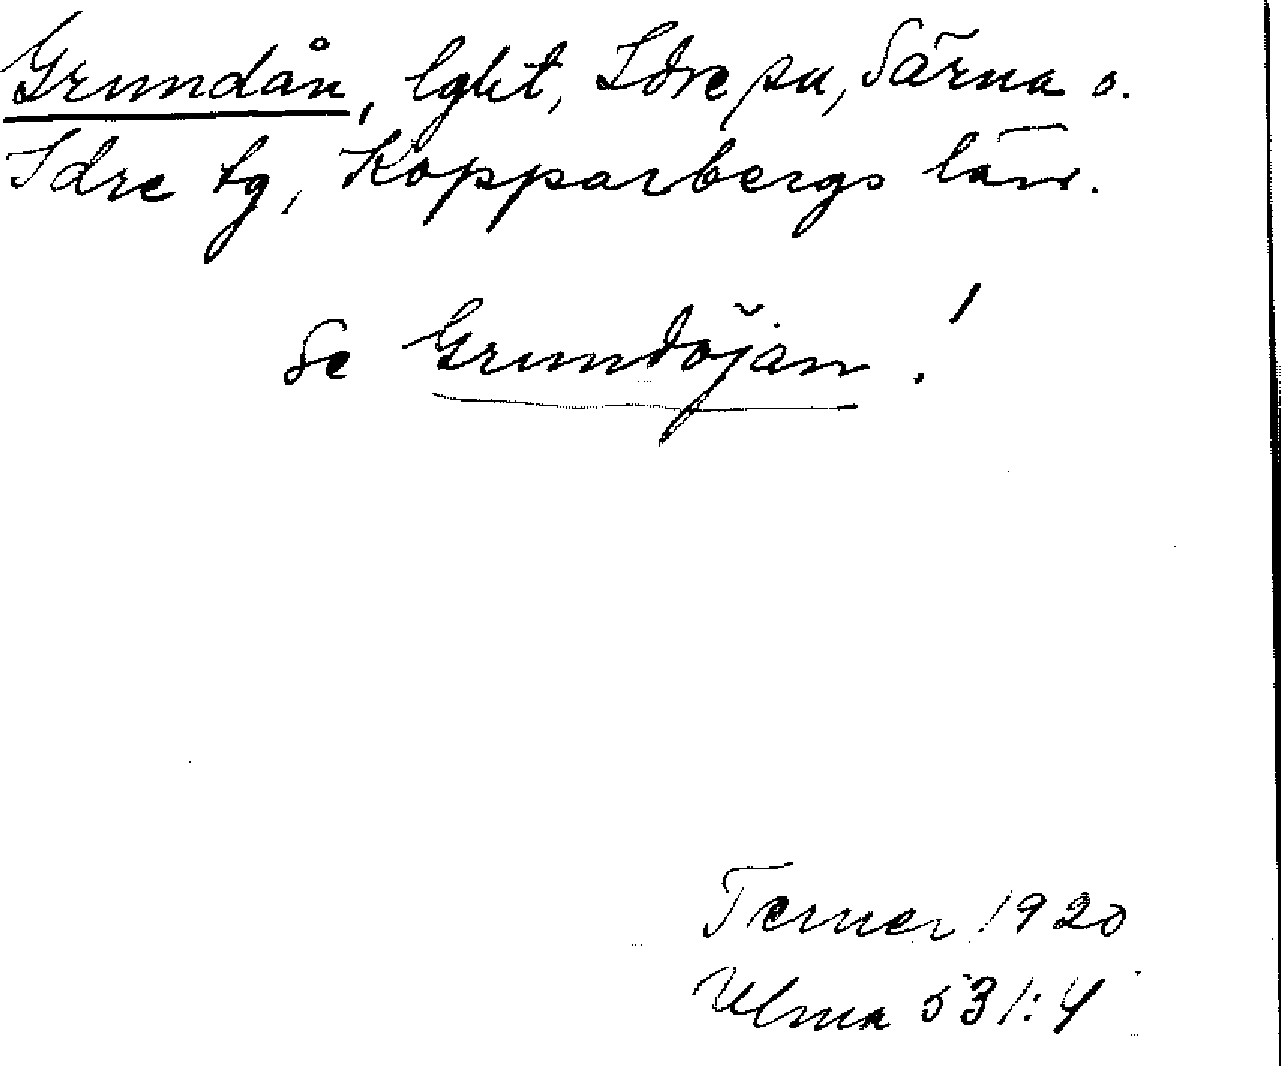 Grundån, lght, Idre sn, Särna o.
Idre tg, Kopparbergs län.
Se Grundöjan!
Terner 1920
Ulma 531:4